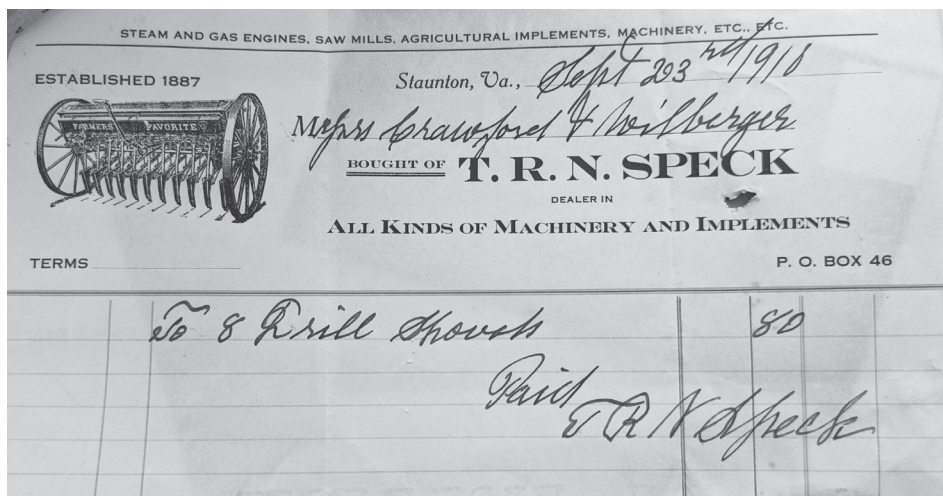 STEAM AND GAS ENGINES, SAW MILLS, AGRICULTURAL IMPLEMENTS, MACHINERY, ETC., ETC.
ESTABLISHED 1887
Staunton, Va., Sept 23rd 1910
FARMERS FAVORITE
Messrs Crawford & Wilberger
BOUGHT OF T. R. N. SPECK
DEALER IN
ALL KINDS OF MACHINERY AND IMPLEMENTS
TERMS
P. O. BOX 46
To 8 Drill Shovels 80
Paid
T R N Speck